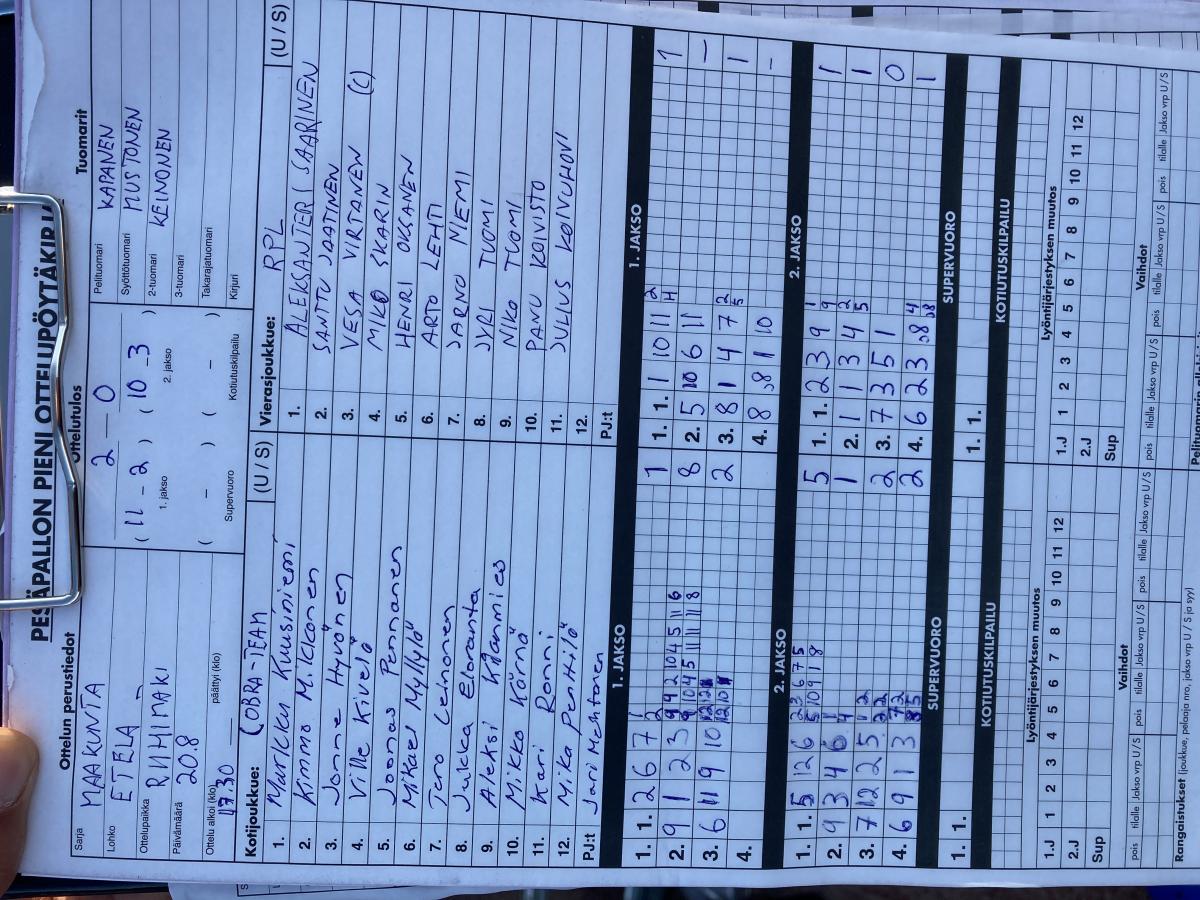 PESÄPALLON PIENI OTTELUPÖYTÄKIRJA
Ottelun perustiedot
Sarja
MAAKUNTA
Lohko
ETELÄ
Ottelupaikka
RIIHIMÄKI
Päivämäärä
20.8
Ottelu alkoi (klo)
17.30
päättyi (klo)
Ottelutulos
2 — 0
( 11 - 2 ) ( 10 - 3 )
1. jakso 2. jakso
( - ) ( - )
Supervuoro Kotiutuskilpailu
Tuomarit
Pelituomari
KAPANEN
Syöttötuomari
MUSTONEN
2-tuomari
KEINONEN
3-tuomari
Takarajatuomari
Kirjuri
Kotijoukkue: COBRA-TEAM (U / S)
1. Markku Kuusiniemi
2. Kimmo Mikkonen
3. Jonne Hyvönen
4. Ville Kivelä
5. Joonas Pennanen
6. Mikael Myllylä
7. Tero Lehonen
8. Jukka Eloranta
9. Aleksi Kilanmies
10. Mikko Körnä
11. Kari Ronni
12. Mika Penttilä
PJ:t Jari Mehtonen
Vierasjoukkue: RPL (U / S)
1. ALEKSANTERI SAARINEN
2. SANTTU JAATINEN
3. VESA VIRTANEN (C)
4. MIKO SKARIN
5. HENRI OKSANEN
6. ARTO LEHTI
7. JARNO NIEMI
8. JYRI TUOMI
9. NIKO TUOMI
10. PANU KOIVISTO
11. JULIUS KOIVUHOVI
12.
PJ:t
1. JAKSO
1. 1. 2 6 7 1
2. 9 1 2 3 8
3. 6 11 9 10 2
4.
1. JAKSO
1. 1. 1 10 11 2 1
2. 5 10 6 11 H –
3. 8 1 4 7 2 5 1
4. 8 8 1 10 -
2. JAKSO
1. 1. 5 12 6 5
2. 9 3 4 6 1
3. 7 12 2 5 2
4. 6 9 1 3 2
2. JAKSO
1. 1. 2 3 9 1 1
2. 1 1 3 4 1
3. 7 3 5 1 0
4. 6 2 3 8 1
SUPERVUORO
1. 1.
SUPERVUORO
1. 1.
KOTIUTUSKILPAILU
KOTIUTUSKILPAILU
Lyöntijärjestyksen muutos
1.J 1 2 3 4 5 6 7 8 9 10 11 12
2.J
Sup
Lyöntijärjestyksen muutos
1.J 1 2 3 4 5 6 7 8 9 10 11 12
2.J
Sup
Vaihdot
pois tilalle Jakso vrp U/S pois tilalle Jakso vrp U/S pois tilalle Jakso vrp U/S
Vaihdot
pois tilalle Jakso vrp U/S pois tilalle Jakso vrp U/S pois tilalle Jakso vrp U/S
Rangaistukset (joukkue, pelaaja nro, jakso vrp U/S ja syy)